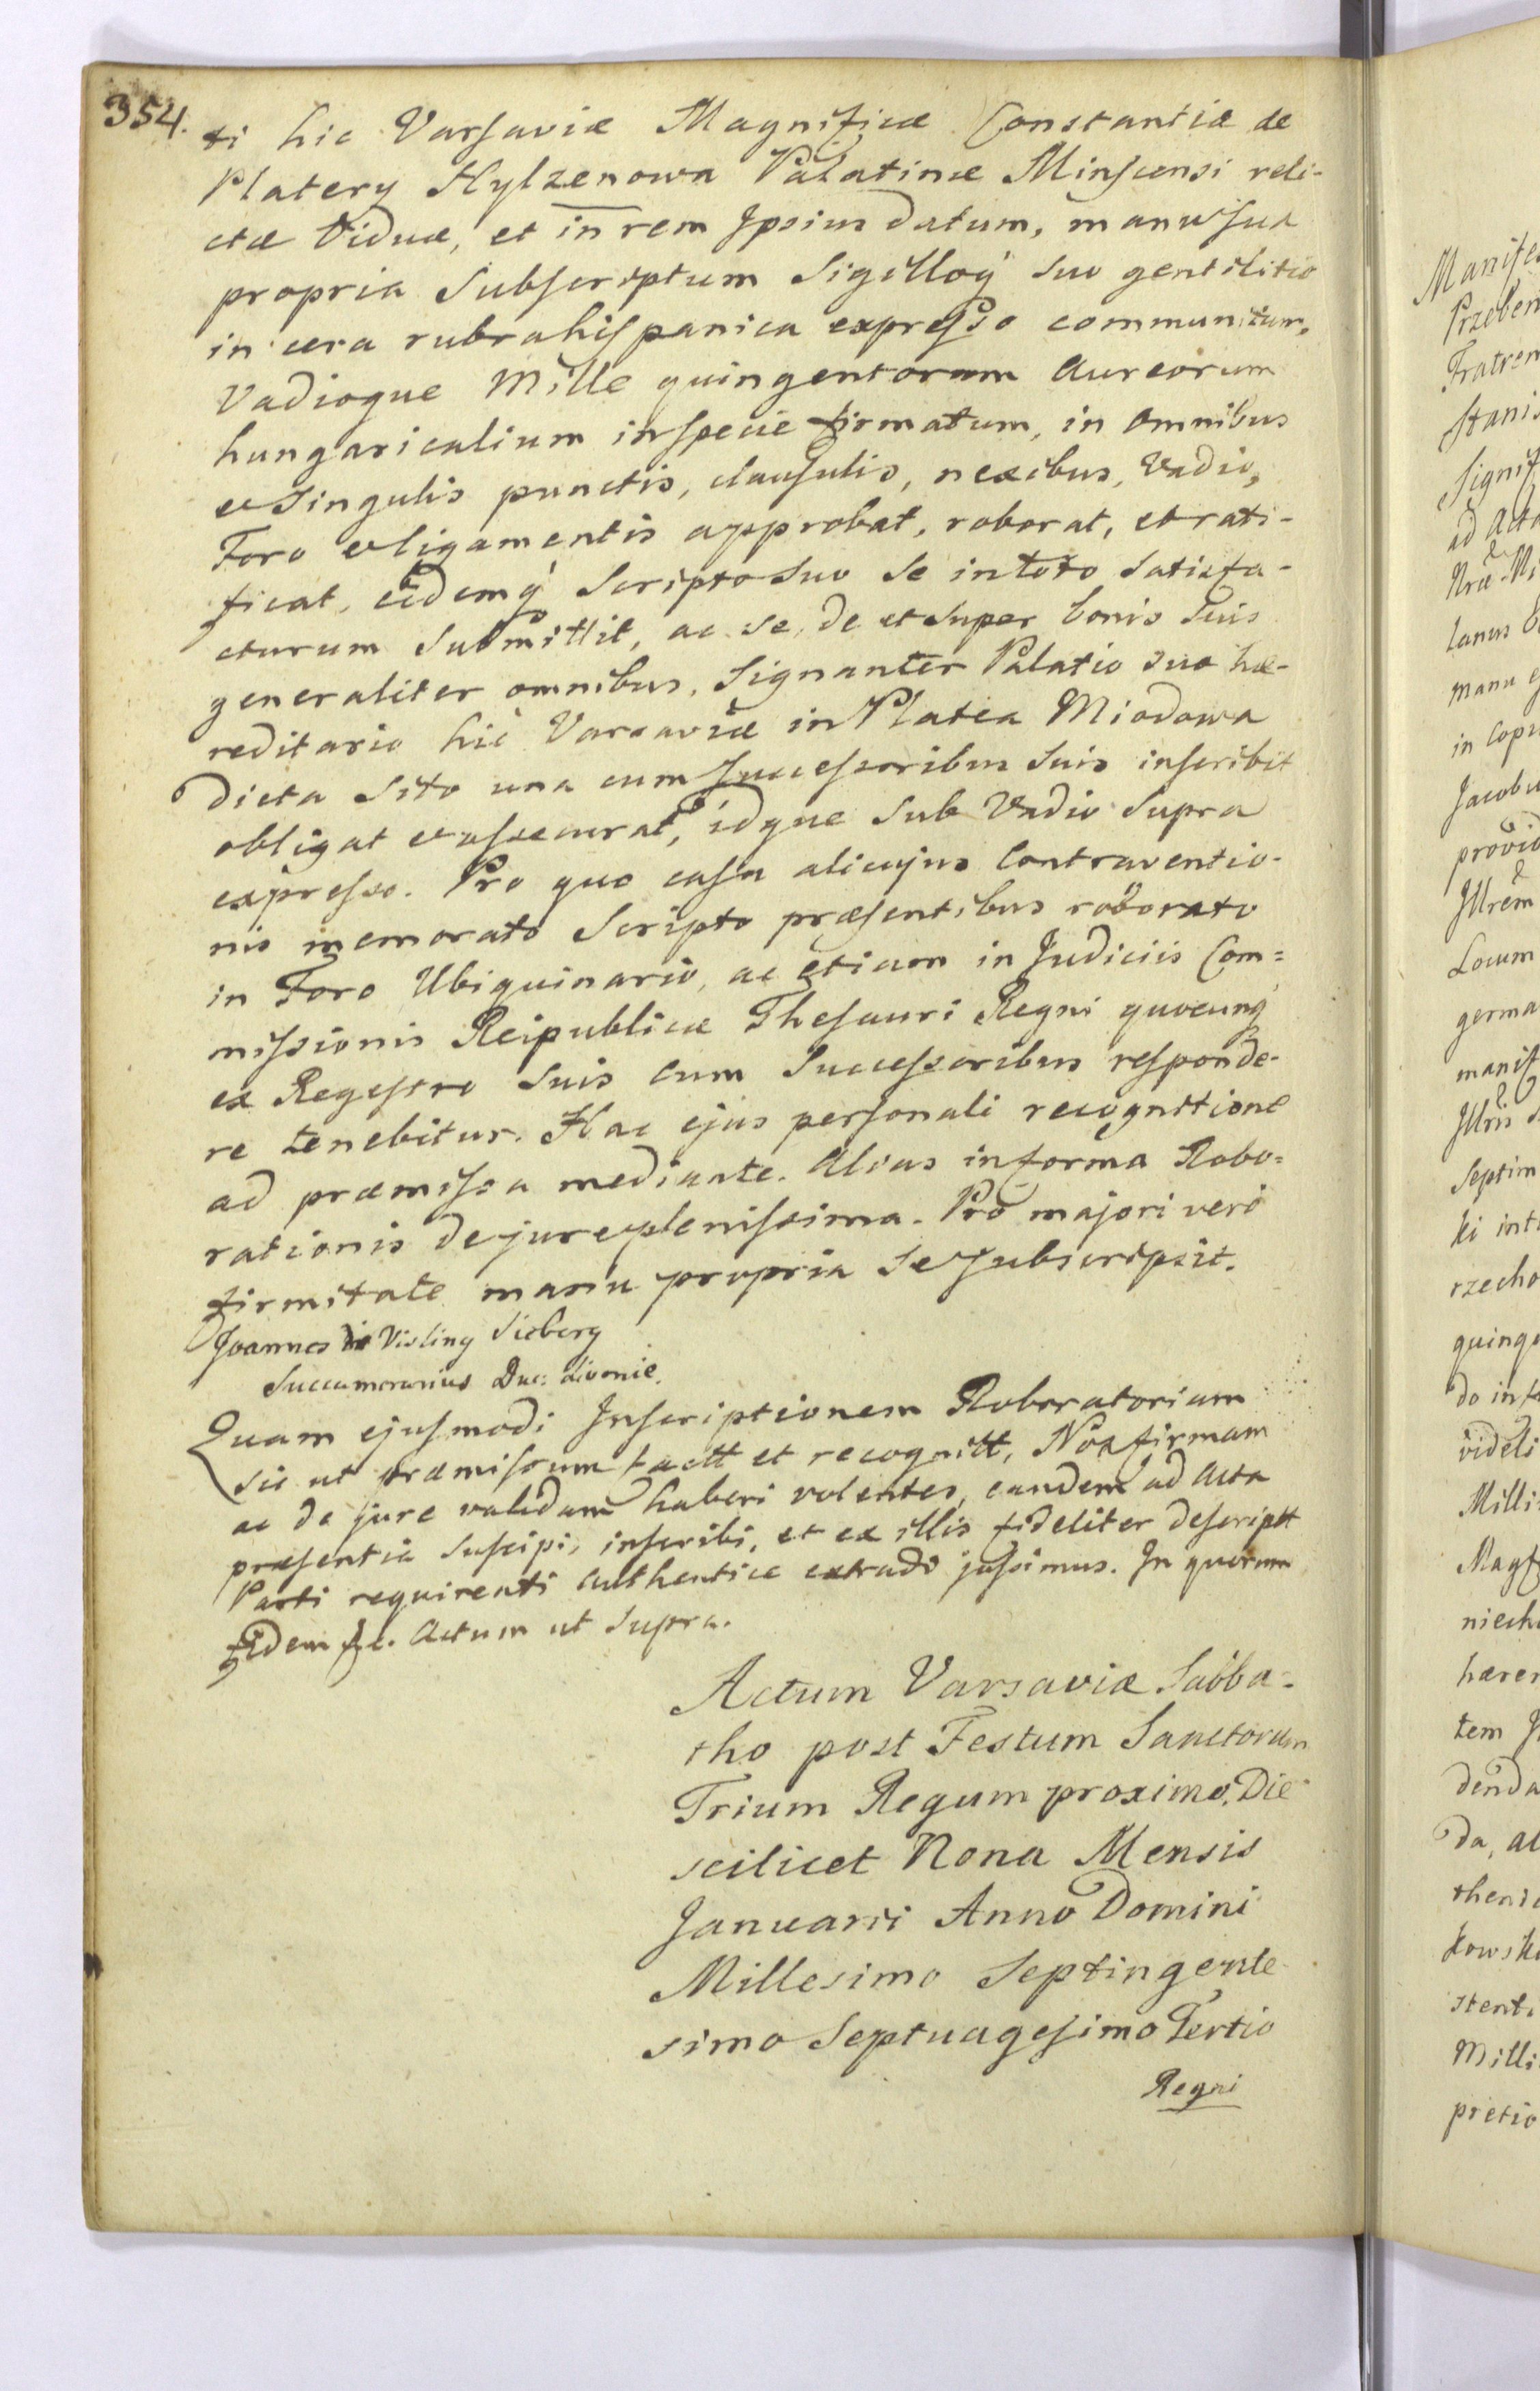 354.
ti hic Varsaviæ Magnificæ Constantiæ de
Platery Hylzenowa Palatinæ Minscensi reli-
ctæ Viduæ, et in rem Ipsius datum, manu sua
propria Subscriptum Sigilloq́ suo gentilitio
in cera rubra hispanica expresso communitum,
Vadioque Mille quingentorum Aureorum
hungaricalium in specie firmatum, in omnibus
et Singulis punctis, clausulis, nexibus, Vadio,
Foro et ligamentis approbat, roborat, et rati-
ficat, eidemq́ Scripto Suo Se in toto Satisfa-
cturum Submittit, ac Se, de et Super bonis Suis
generaliter omnibus, Signanter Palatio suo hæ-
reditario hic Varsaviæ in Platea Miodowa
dicta Sito una cum Successoribus Suis inscribit
obligat et assecurat, idque Sub Vadio Supra
expresso. Pro quo casu alicujus Contraventio-
nis memorato Scripto præsentibus roborato
in Foro Ubiquinario, ac etiam in Judiciis Com=
missionis Reipublicæ Thesauri Regni quocunq́
ex Regestro Suis cum Successoribus responde-
re tenebitur. Hac ejus personali recognitione
ad præmissa mediante. Alias in forma Robo=
rationis de jure plenissima. Pro majori vero
firmitate manu propria Se Subscripsit.
Joannes de Visling Sieberg
Succamerarius Duc: Livonie.
Quam ejusmodi Inscriptionem Roboratoriam
sic ut præmissum factt et recognitt, Nos firmam
ac de jure validam haberi volentes, eandem ad Acta
præsentia Suscipi, inscribi, et ex illis fideliter descriptt
Parti requirenti authentice extradi jussimus. In quorum
fidem &c. Actum ut Supra.
Actum Varsaviæ Sabba=
tho post Festum Sanctorum
Trium Regum proximo, Die
scilicet Nona Mensis
Januarii Anno Domini
Millesimo Septingente
simo Septuagesimo Tertio
Regni
Manifes
Przeben
Fratrem
Stanis
Signif
ad Acta
lanus
manu
in
Jacobu
provid
Illrem
Locum
germa
manif
Illris
Septim
ki int
rzecho
quinge
do
videli
Milli
niech
hærer
tem
denda
da,
kowsk
stent
Milli
pretio